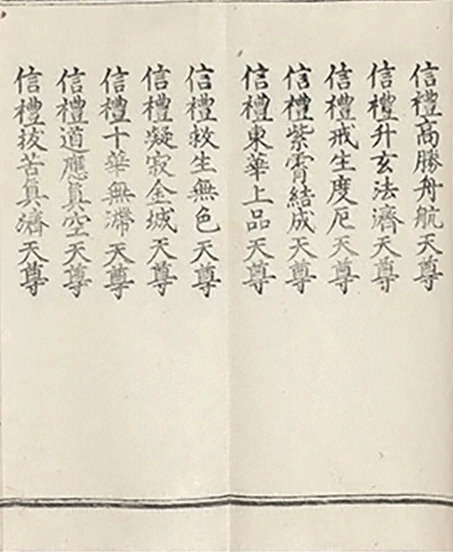 信禮高勝舟航天尊
信禮升玄法濟天尊
信禮戒生度厄天尊
信禮紫霄結成天尊
信禮東華上品天尊
信禮救生無色天尊
信禮凝寂金城天尊
信禮十華無滯天尊
信禮道應真空天尊
信禮拔苦真濟天尊